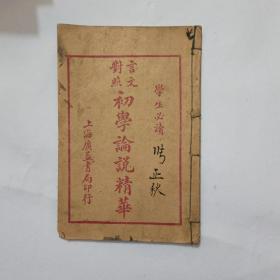 學生必讀
言文對照
初學論說精華
上海廣益書局印行
正秋